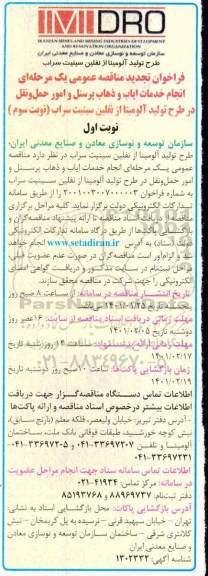 IMIDRO
IRANIAN MINES AND MINING INDUSTRIES DEVELOPMENT
AND RENOVATION ORGANIZATION
سازمان توسعه و نوسازی معادن و صنایع معدنی ایران
طرح تولید آلومینا از نفلین سینیت سراب
فراخوان تجدید مناقصه عمومی یک مرحله‌ای
انجام خدمات ایاب و ذهاب پرسنل و امور حمل‌ونقل
در طرح تولید آلومینا از نفلین سینیت سراب (نوبت سوم)
نوبت اول
سازمان توسعه و نوسازی معادن و صنایع معدنی ایران-
طرح تولید آلومینا از نفلین سینیت سراب در نظر دارد مناقصه
عمومی یک مرحله‌ای انجام خدمات ایاب و ذهاب پرسنل و
امور حمل‌ونقل در طرح تولید آلومینا از نفلین سینیت سراب
تدارکات الکترونیکی دولت برگزار نماید. کلیه مراحل برگزاری
مناقصه از دریافت اسناد مناقصه تا ارائه پیشنهاد مناقصه‌گران و
بازگشایی پاکت‌ها از طریق درگاه سامانه تدارکات الکترونیکی
دولت (ستاد) به آدرس www.setadiran.ir انجام خواهد
شد و لازم است مناقصه‌گران در صورت عدم عضویت قبلی،
مراحل ثبت‌نام در سایت مذکور و دریافت گواهی امضای
الکترونیکی را جهت شرکت در مناقصه محقق سازند.
تاریخ انتشار مناقصه در سامانه: از ساعت ۸ صبح روز
مهلت زمانی دریافت اسناد مناقصه از سایت: ۱۶ عصر روز
دوشنبه تاریخ ۱۴۰۱/۰۲/۰۵
۱۴۰۱/۰۲/۱۷
زمان بازگشایی پاکت‌ها: ساعت ۱۰ صبح روز دوشنبه تاریخ
۱۴۰۱/۰۲/۱۹
اطلاعات تماس دستگاه مناقصه‌گزار جهت دریافت
اطلاعات بیشتر درخصوص اسناد مناقصه و ارائه پاکت‌ها
- آدرس دفتر تبریز: خیابان ولیعصر، فلکه معلم (بارنج سابق)،
نبش کوچه خورشید، طبقات فوقانی بانک ملت، ساختمان
آلومینا و تلفن ۳۳۶۹۷۲۰۷-۰۴۱ و ۳۳۶۹۷۲۰۵-۰۴۱ و
۳۳۶۹۷۲۳۱-۰۴۱
اطلاعات تماس سامانه ستاد جهت انجام مراحل عضویت
در سامانه: مرکز تماس: ۴۱۹۳۴-۰۲۱
دفتر ثبت‌نام: ۸۸۹۶۹۷۳۷ و ۸۵۱۹۳۷۶۸
آدرس بازگشایی پاکات: محل بازگشایی اسناد به نشانی
تهران - خیابان سپهبد قرنی - نرسیده به پل کریمخان - نبش
کلانتری شرقی - ساختمان سازمان توسعه و نوسازی معادن
و صنایع معدنی ایران
شناسه آگهی: ۱۳۰۲۳۳۲